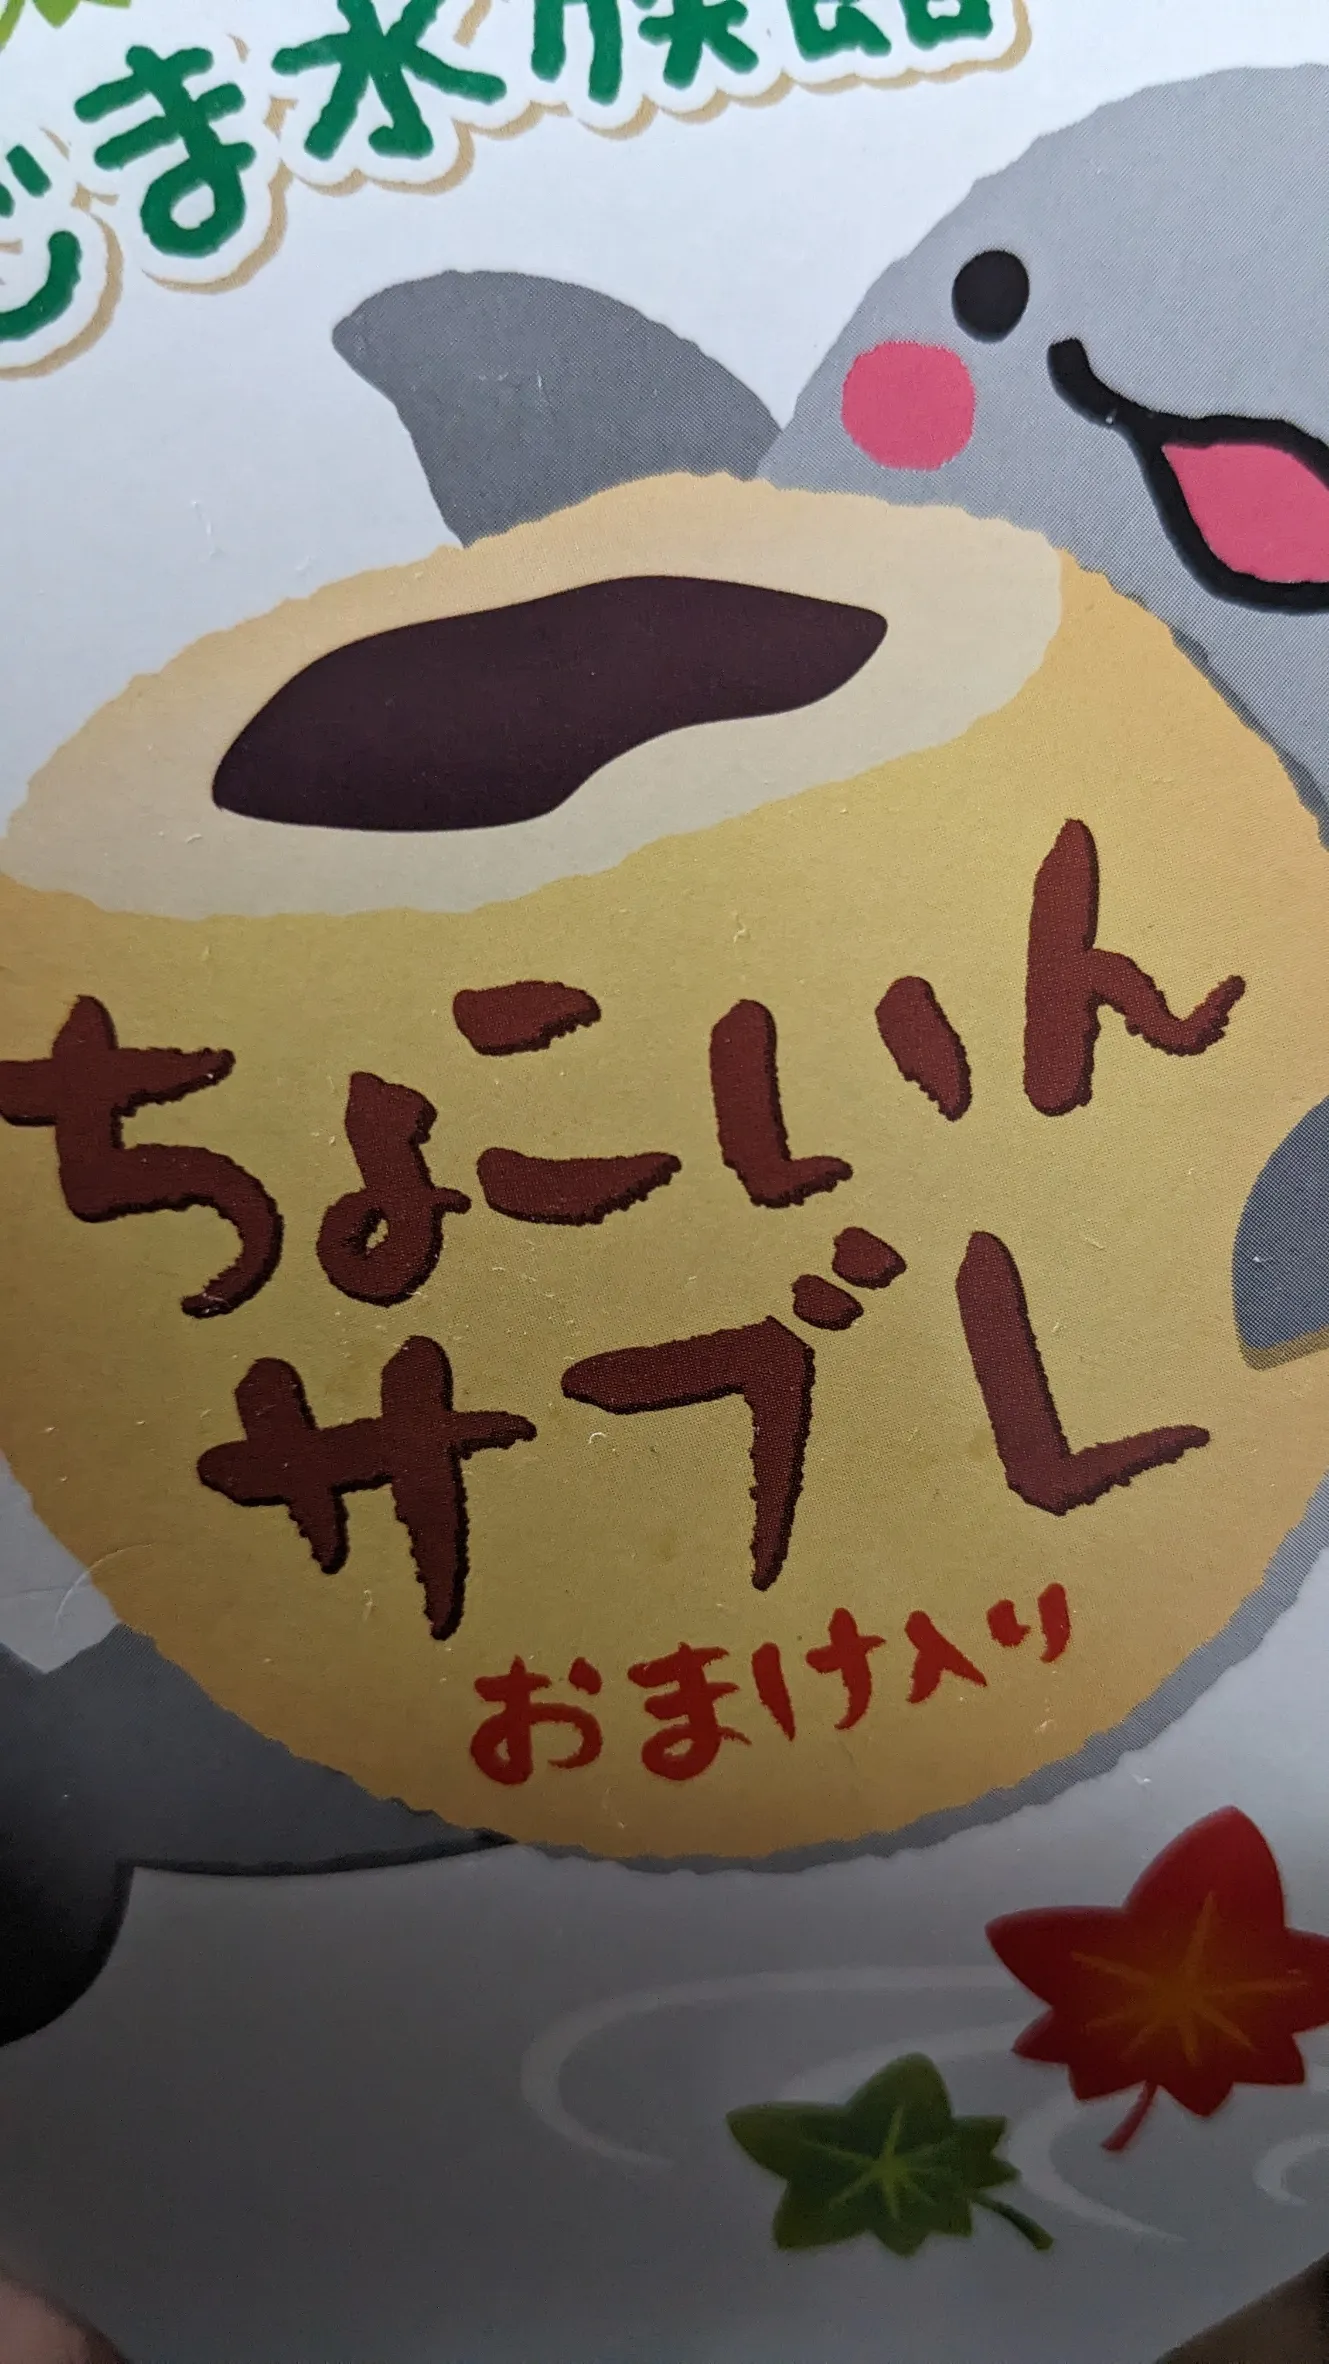 じま水族館
ちょこいん
サブレ
おまけ入り